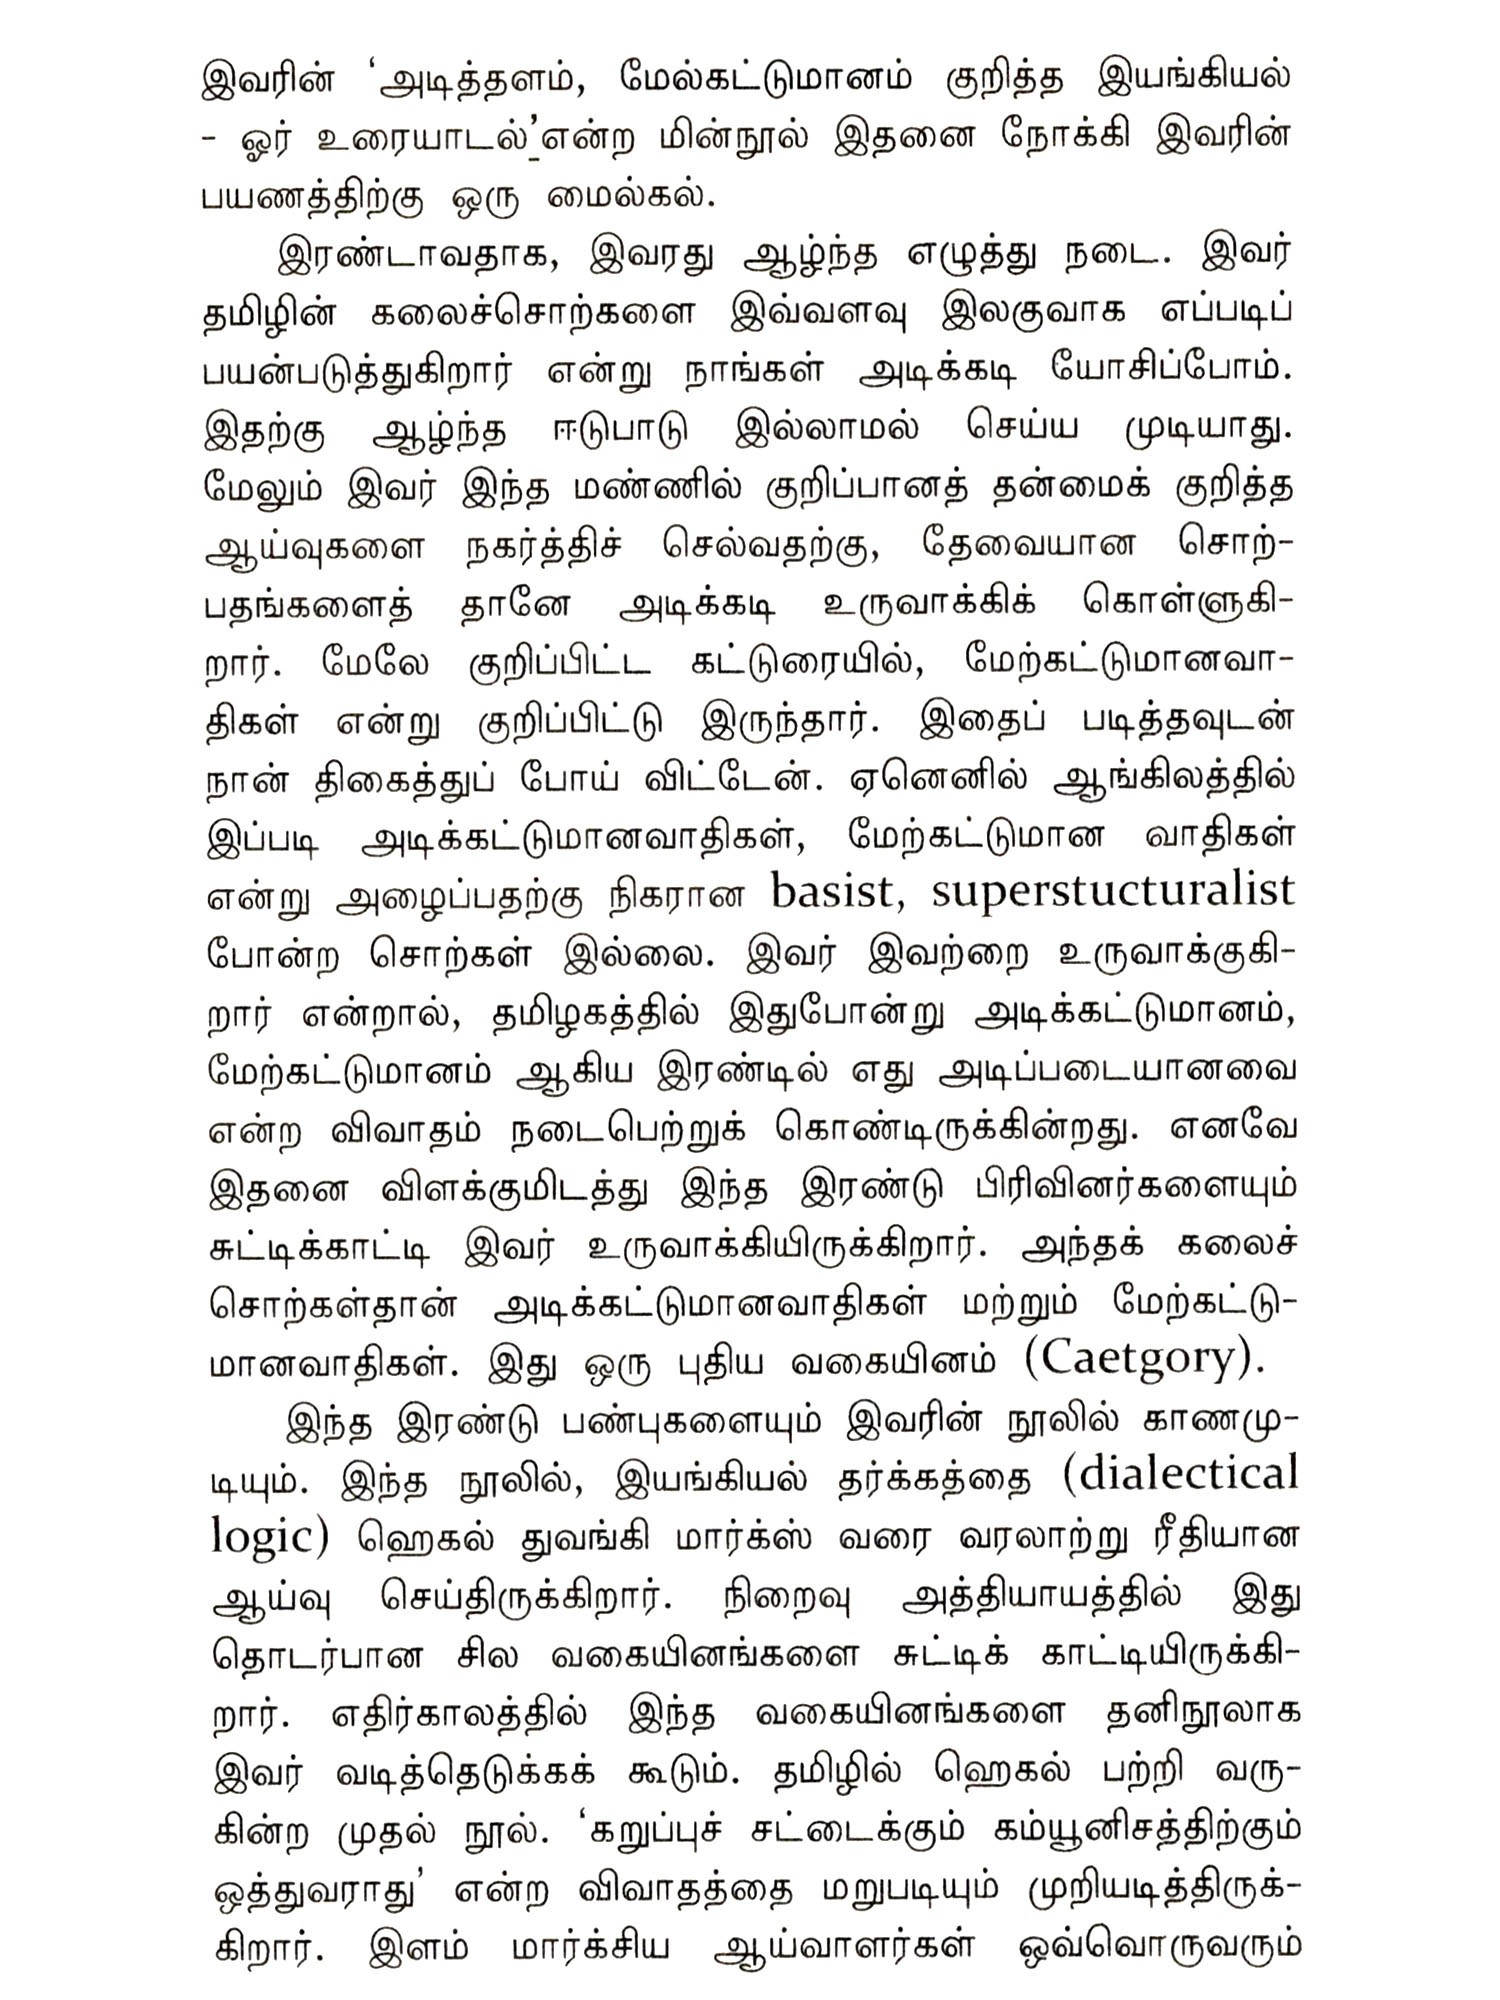 இவரின் ‘அடித்தளம், மேல்கட்டுமானம் குறித்த இயங்கியல்
- ஓர் உரையாடல்’என்ற மின்நூல் இதனை நோக்கி இவரின்
பயணத்திற்கு ஒரு மைல்கல்.
இரண்டாவதாக, இவரது ஆழ்ந்த எழுத்து நடை. இவர்
தமிழின் கலைச்சொற்களை இவ்வளவு இலகுவாக எப்படிப்
பயன்படுத்துகிறார் என்று நாங்கள் அடிக்கடி யோசிப்போம்.
இதற்கு ஆழ்ந்த ஈடுபாடு இல்லாமல் செய்ய முடியாது.
மேலும் இவர் இந்த மண்ணில் குறிப்பானத் தன்மைக் குறித்த
ஆய்வுகளை நகர்த்திச் செல்வதற்கு, தேவையான சொற்-
பதங்களைத் தானே அடிக்கடி உருவாக்கிக் கொள்ளுகி-
றார். மேலே குறிப்பிட்ட கட்டுரையில், மேற்கட்டுமானவா-
திகள் என்று குறிப்பிட்டு இருந்தார். இதைப் படித்தவுடன்
நான் திகைத்துப் போய் விட்டேன். ஏனெனில் ஆங்கிலத்தில்
இப்படி அடிக்கட்டுமானவாதிகள், மேற்கட்டுமான வாதிகள்
என்று அழைப்பதற்கு நிகரான basist, superstucturalist
போன்ற சொற்கள் இல்லை. இவர் இவற்றை உருவாக்குகி-
றார் என்றால், தமிழகத்தில் இதுபோன்று அடிக்கட்டுமானம்,
மேற்கட்டுமானம் ஆகிய இரண்டில் எது அடிப்படையானவை
என்ற விவாதம் நடைபெற்றுக் கொண்டிருக்கின்றது. எனவே
இதனை விளக்குமிடத்து இந்த இரண்டு பிரிவினர்களையும்
சுட்டிக்காட்டி இவர் உருவாக்கியிருக்கிறார். அந்தக் கலைச்
சொற்கள்தான் அடிக்கட்டுமானவாதிகள் மற்றும் மேற்கட்டு-
மானவாதிகள். இது ஒரு புதிய வகையினம் (Caetgory).
இந்த இரண்டு பண்புகளையும் இவரின் நூலில் காணமு-
டியும். இந்த நூலில், இயங்கியல் தர்க்கத்தை (dialectical
logic) ஹெகல் துவங்கி மார்க்ஸ் வரை வரலாற்று ரீதியான
ஆய்வு செய்திருக்கிறார். நிறைவு அத்தியாயத்தில் இது
தொடர்பான சில வகையினங்களை சுட்டிக் காட்டியிருக்கி-
றார். எதிர்காலத்தில் இந்த வகையினங்களை தனிநூலாக
இவர் வடித்தெடுக்கக் கூடும். தமிழில் ஹெகல் பற்றி வரு-
கின்ற முதல் நூல். ‘கறுப்புச் சட்டைக்கும் கம்யூனிசத்திற்கும்
ஒத்துவராது’ என்ற விவாதத்தை மறுபடியும் முறியடித்திருக்-
கிறார். இளம் மார்க்சிய ஆய்வாளர்கள் ஒவ்வொருவரும்